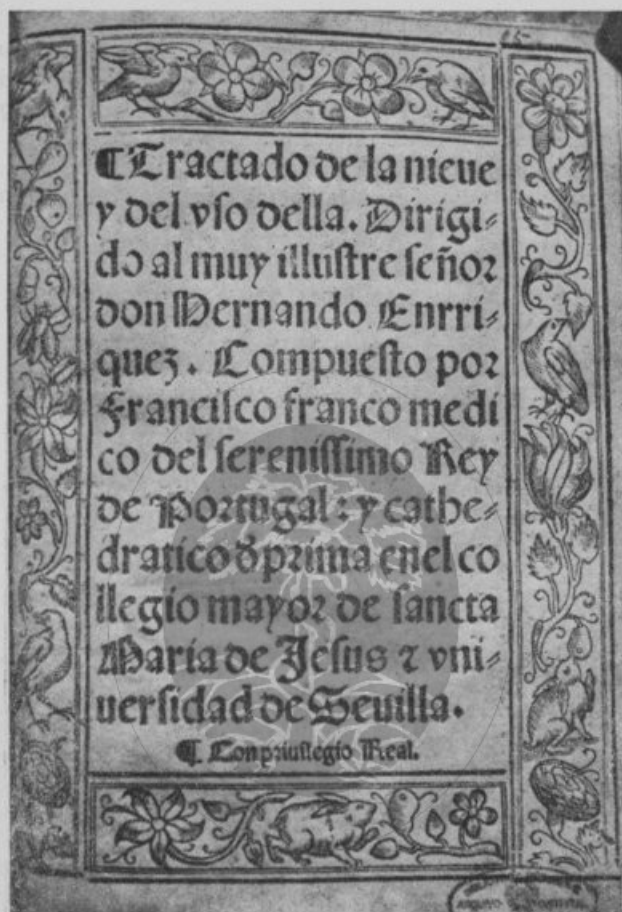 65
¶ Tractado de la nieue
y del vso della. Dirigi-
do al muy illustre señor
don Hernando Enrri-
quez. Compuesto por
Francisco franco medi
co del serenissimo Rey
de Portugal: y cathe-
dratico d̄ prima enel co
llegio mayor de sancta
Maria de Jesus ⁊ vni-
uersidad de Seuilla.
¶ Con priuilegio Real.